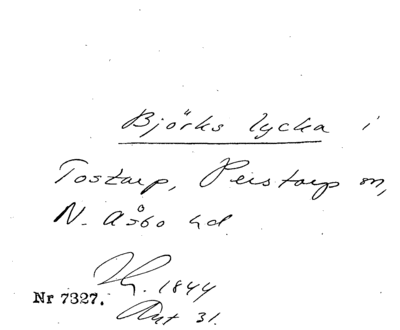 Björks lycka i
Tostarp, Perstorp sn,
N. Åsbo hd.
Nr 7327. 1844
Ant 31.